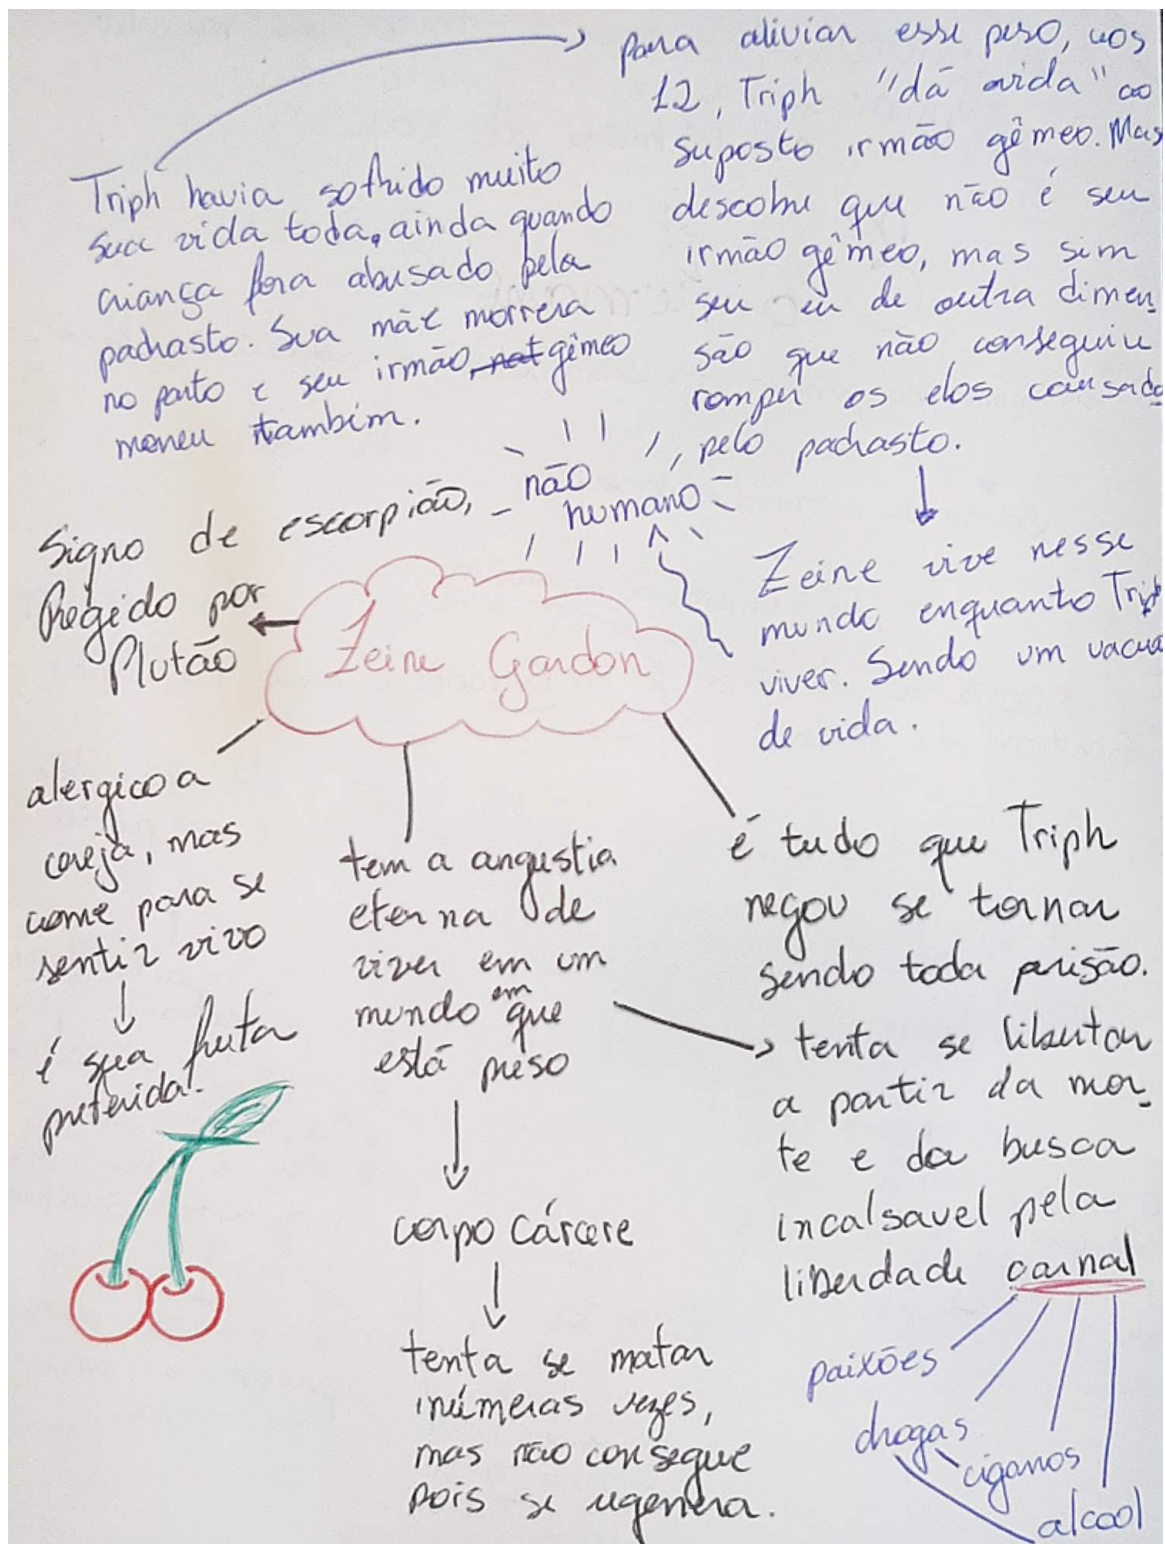 Triph havia sofrido muito
sua vida toda, ainda quando
criança fora abusado pela
padrasto. Sua mãe morrera
no parto e seu irmão gêmeo
morreu também.
para aliviar esse peso, aos
12, Triph "dá avida" ao
suposto irmão gêmeo. Mas
descobre que não é seu
irmão gêmeo, mas sim
seu eu de outra dimen-
são que não conseguiu
romper os elos causado
pelo padrasto.
Zeine vive nesse
mundo enquanto Triph
viver. Sendo um vacuo
de vida.
não
humano
Signo de escorpião,
Regido por
Plutão
Zeine Gardon
alergico a
cereja, mas
come para se
sentir vivo
é sua fruta
preferida.
tem a angustia
eterna de
viver em um
mundo em que
está preso
corpo cárcere
tenta se matar
inúmeras vezes,
mas não consegue
pois se regenera.
é tudo que Triph
negou se tornar
sendo toda prisão.
tenta se libertar
a partir da mor-
te e da busca
incalsavel pela
liberdade carnal
paixões
drogas
ciganos
alcool